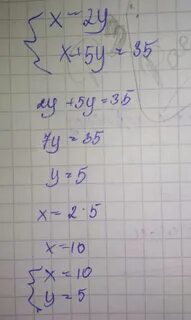 { x = 2y
x + 5y = 35
2y + 5y = 35
7y = 35
y = 5
x = 2 · 5
x = 10
{ x = 10
y = 5